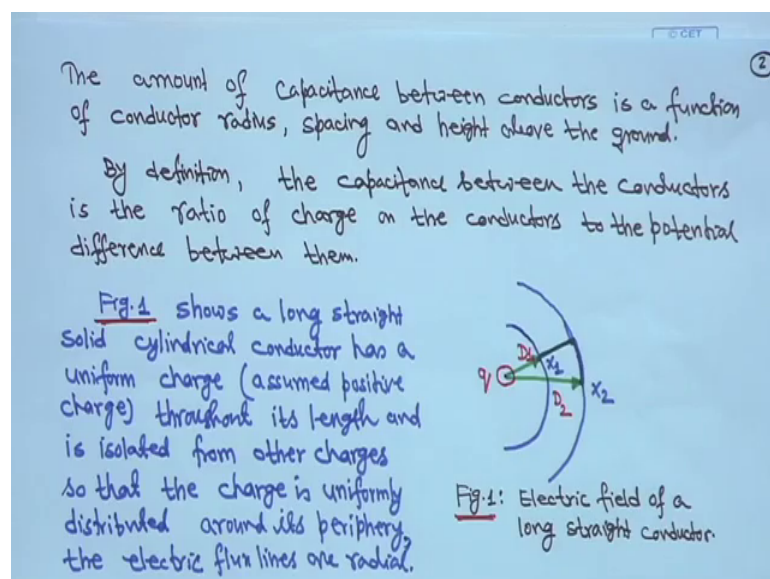 © CET
2
The amount of capacitance between conductors is a function
of conductor radius, spacing and height above the ground.
By definition, the capacitance between the conductors
is the ratio of charge on the conductors to the potential
difference between them.
Fig.1 shows a long straight
solid cylindrical conductor has a
uniform charge (assumed positive
charge) throughout its length and
is isolated from other charges
so that the charge is uniformly
distributed around its periphery,
the electric flux lines are radial.
q
D1
x1
D2
x2
Fig.1: Electric field of a
long straight conductor.